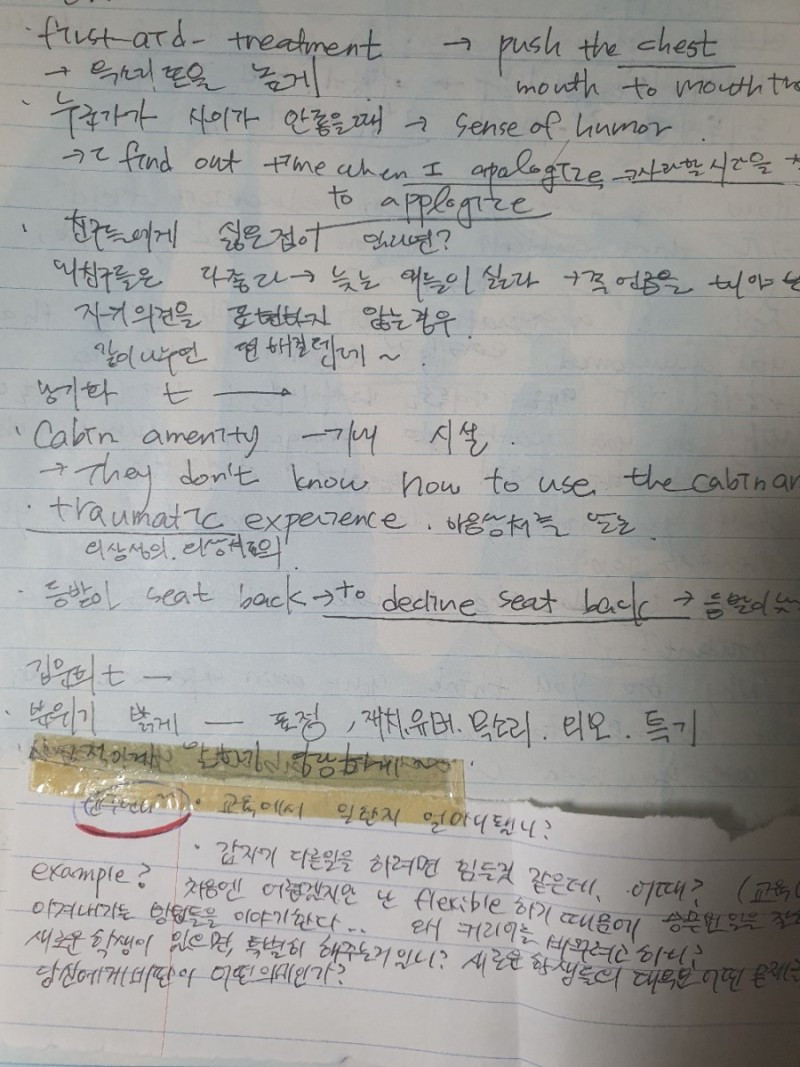 · first-aid- treatment → push the chest
→ 목소리 톤을 높게 mouth to mouth
· 누군가가 사이가 안좋을때 → sense of humor
→ I find out time when I apologize 시간을
to applogize
· 친구들에게 싫은점이 있다면?
내친구들은 다좋다 → 늦는 애들이 싫다 →
자기의견을 표현하지 않는 경우.
같이 나누면 편해질텐데 ~.
t →
· Cabin amenity — 기내 시설.
→ They don't know how to use the cabin
· traumatic experience. 마음상처를 또는
외상성의.
· 등받이 seat back → to decline seat back → 등받이
김윤희 t —
· 분위기 밝게 — 표정, 재치, 유머. 목소리. 외모. 특기
말하기
· 교육에서 일한지 얼마나됐니?
· 갑자기 다른일을 하려면 힘들것 같은데, 어때?
example? 처음엔 어렵겠지만 난 flexible 하기 때문에 승무원 일을
이겨내기는 방법들을 이야기한다... 왜 커리어를 바꾸려고 하니?
새로운 학생이 있으면, 특별히 해주는게 있니? 새로운 학생들의 대부분 어떤 문제
당신에게 비판이 어떤 의미인가?